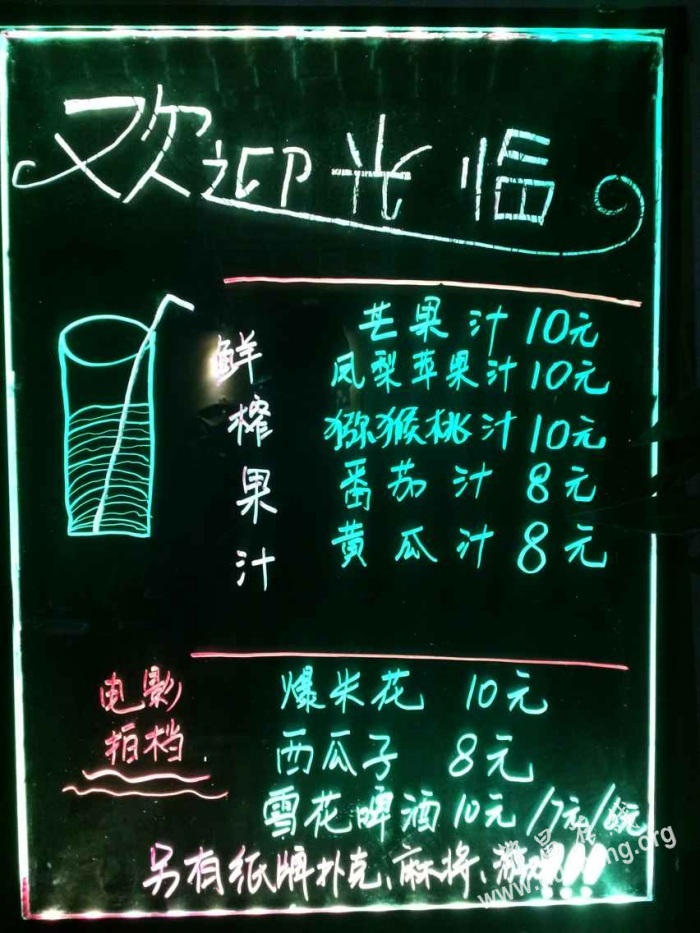 欢迎光临
鲜榨果汁
芒果汁 10元
凤梨苹果汁 10元
猕猴桃汁 10元
番茄汁 8元
黄瓜汁 8元
电影
拍档
爆米花 10元
西瓜子 8元
雪花啤酒 10元/7元/6元
另有纸牌扑克、麻将、